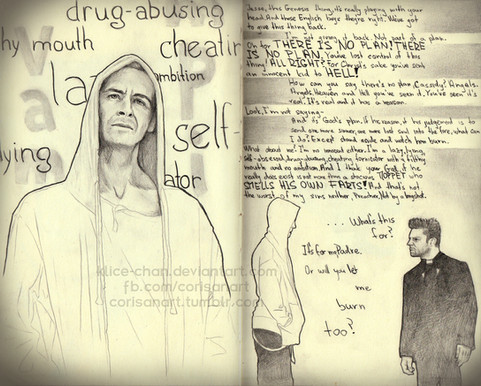 drug-abusing
hy mouth
cheatin
la
mbition
self-
lying
ator
alice-chan.deviantart.com
fb.com/corisanart
corisanart.tumblr.com
Jesse, this Genesis thing, it's really playing with your
head. And those English boys they're right. We've got
to give this thing back.
I'm not giving it back. Not part of a plan.
Oh for THERE IS NO PLAN! THERE
IS NO PLAN. You've lost control of this
thing! ALL RIGHT? For Christ's sake you've sent
an innocent kid to HELL!
How can you say there's no plan, Cassidy? Angels.
Angels, Heaven and Hell you've seen it. You've seen it's
real. It's real and it has a reason.
Look, I'm not saying-
And its God's plan, if he reason, if his judgement is to
send one more sinner, one more lost soul into the fire, what can
I do? Except stand aside and watch him burn.
What about me? I'm no innocent either. I'm a lazy, lying
self-obsessed, drug-abusing, cheating, fornicator with a filthy
mouth and no ambition. And I think your God if he
really does exist is not more than a
who
SMELLS HIS OWN FARTS! And that's not
the worst of my sins neither, Preacher. Not by a longshot.
... What's this
for?
It's for my Padre.
Or will you let
me
burn
too?